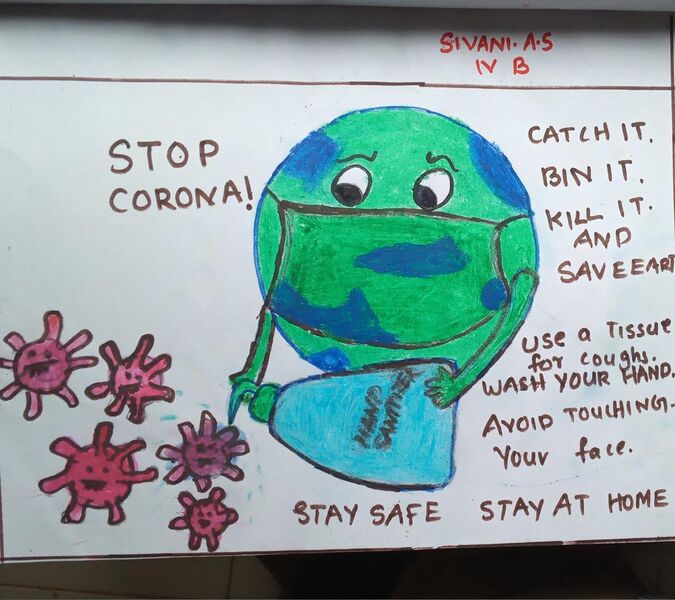 SIVANI.A.S
IV B
STOP
CORONA!
CATCH IT.
BIN IT.
KILL IT.
AND
SAVE EART
USE a TISSUE
for coughs.
WASH YOUR HAND.
AVOID TOUCHING-
Your face.
HAND
SANITIZER
STAY SAFE STAY AT HOME